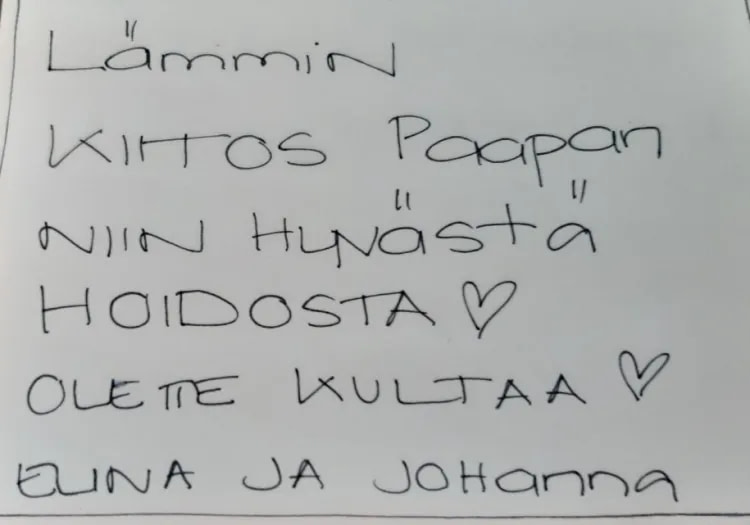 Lämmin
KIITOS Paapan
NIIN HYVÄSTÄ
HOIDOSTA ♡
OLETTE KULTAA ♡
ELINA JA JOHanna